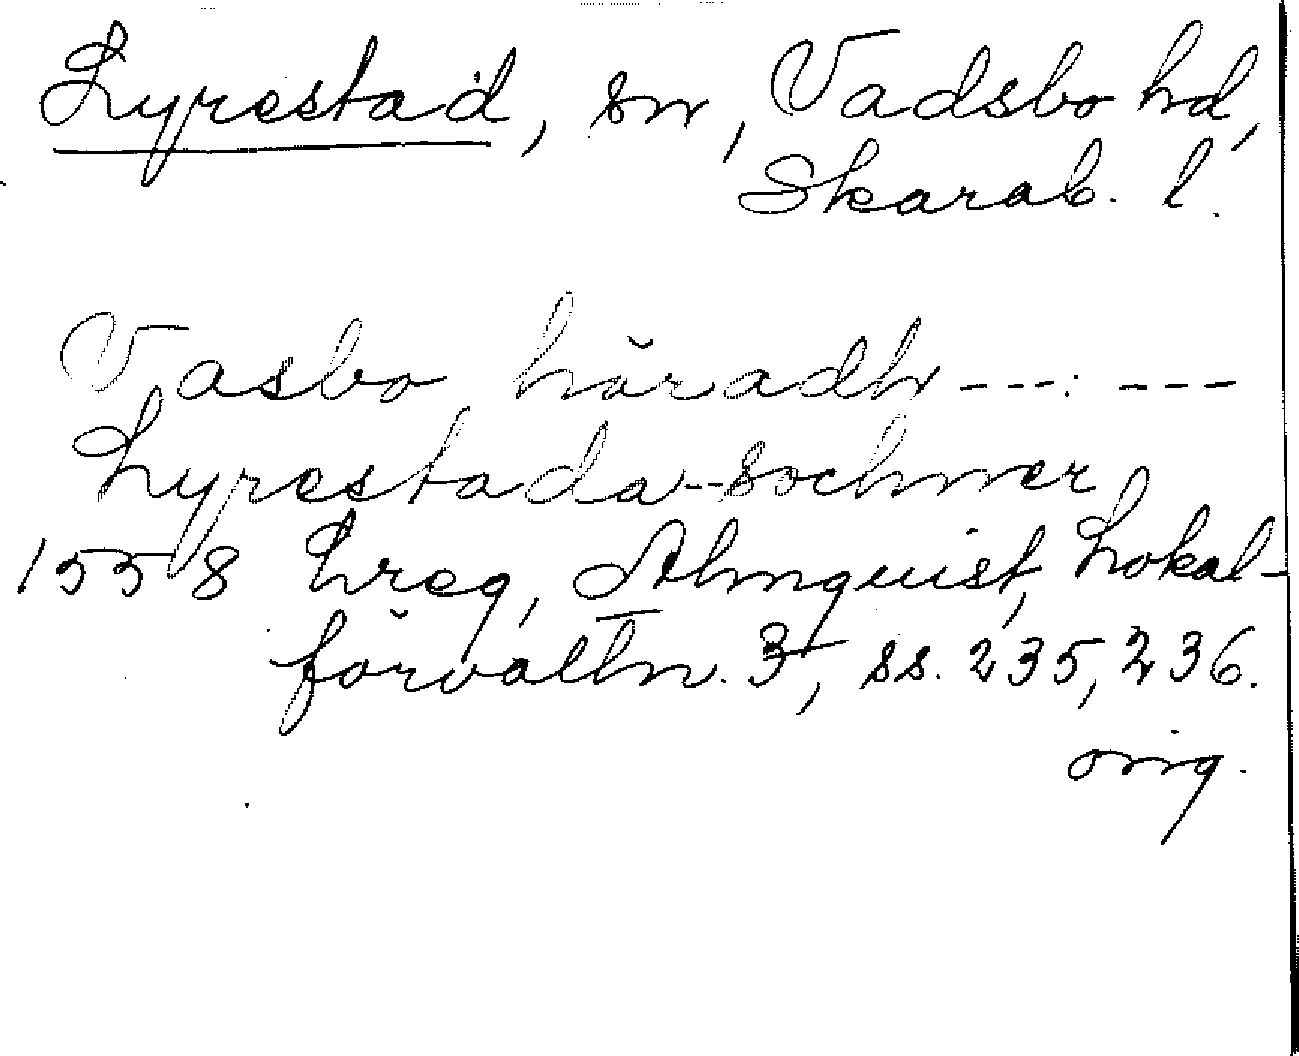 Lyrestad, sn, Vadsbo hd,
Skarab. l.
Vasbo häradh ---: ---
Lyrestada--sochner
1558 Lreg, Almquist, Lokal-
förvaltn. 3, ss. 235, 236.
orig.